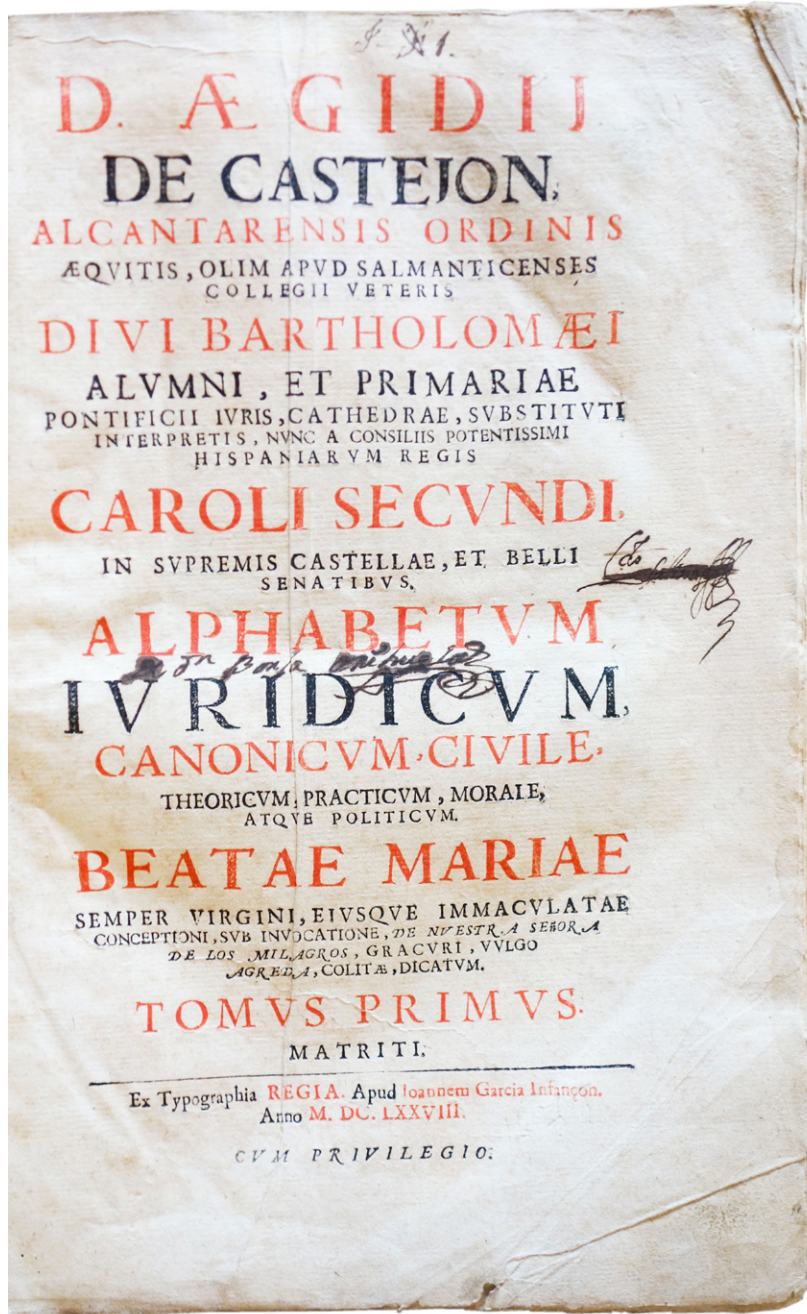 D. ÆGIDIJ
DE CASTEJON,
ALCANTARENSIS ORDINIS
ÆQVITIS, OLIM APVD SALMANTICENSES
COLLEGII VETERIS
DIVI BARTHOLOMÆI
ALVMNI, ET PRIMARIAE
PONTIFICII IVRIS, CATHEDRAE, SVBSTITVTI
INTERPRETIS, NVNC A CONSILIIS POTENTISSIMI
HISPANIARVM REGIS
CAROLI SECVNDI,
IN SVPREMIS CASTELLAE, ET BELLI
SENATIBVS.
ALPHABETVM
IVRIDICVM,
CANONICVM, CIVILE,
THEORICVM, PRACTICVM, MORALE,
ATQVE POLITICVM.
BEATAE MARIAE
SEMPER VIRGINI, EIVSQVE IMMACVLATAE
CONCEPTIONI, SVB INVOCATIONE, DE NVESTRA SEÑORA
DE LOS MILAGROS, GRACVRI, VVLGO
AGREDA, COLITÆ, DICATVM.
TOMVS PRIMVS.
MATRITI.
Ex Typographia REGIA. Apud Ioannem Garcia Infançon.
Anno M. DC. LXXVIII.
CVM PRIVILEGIO.